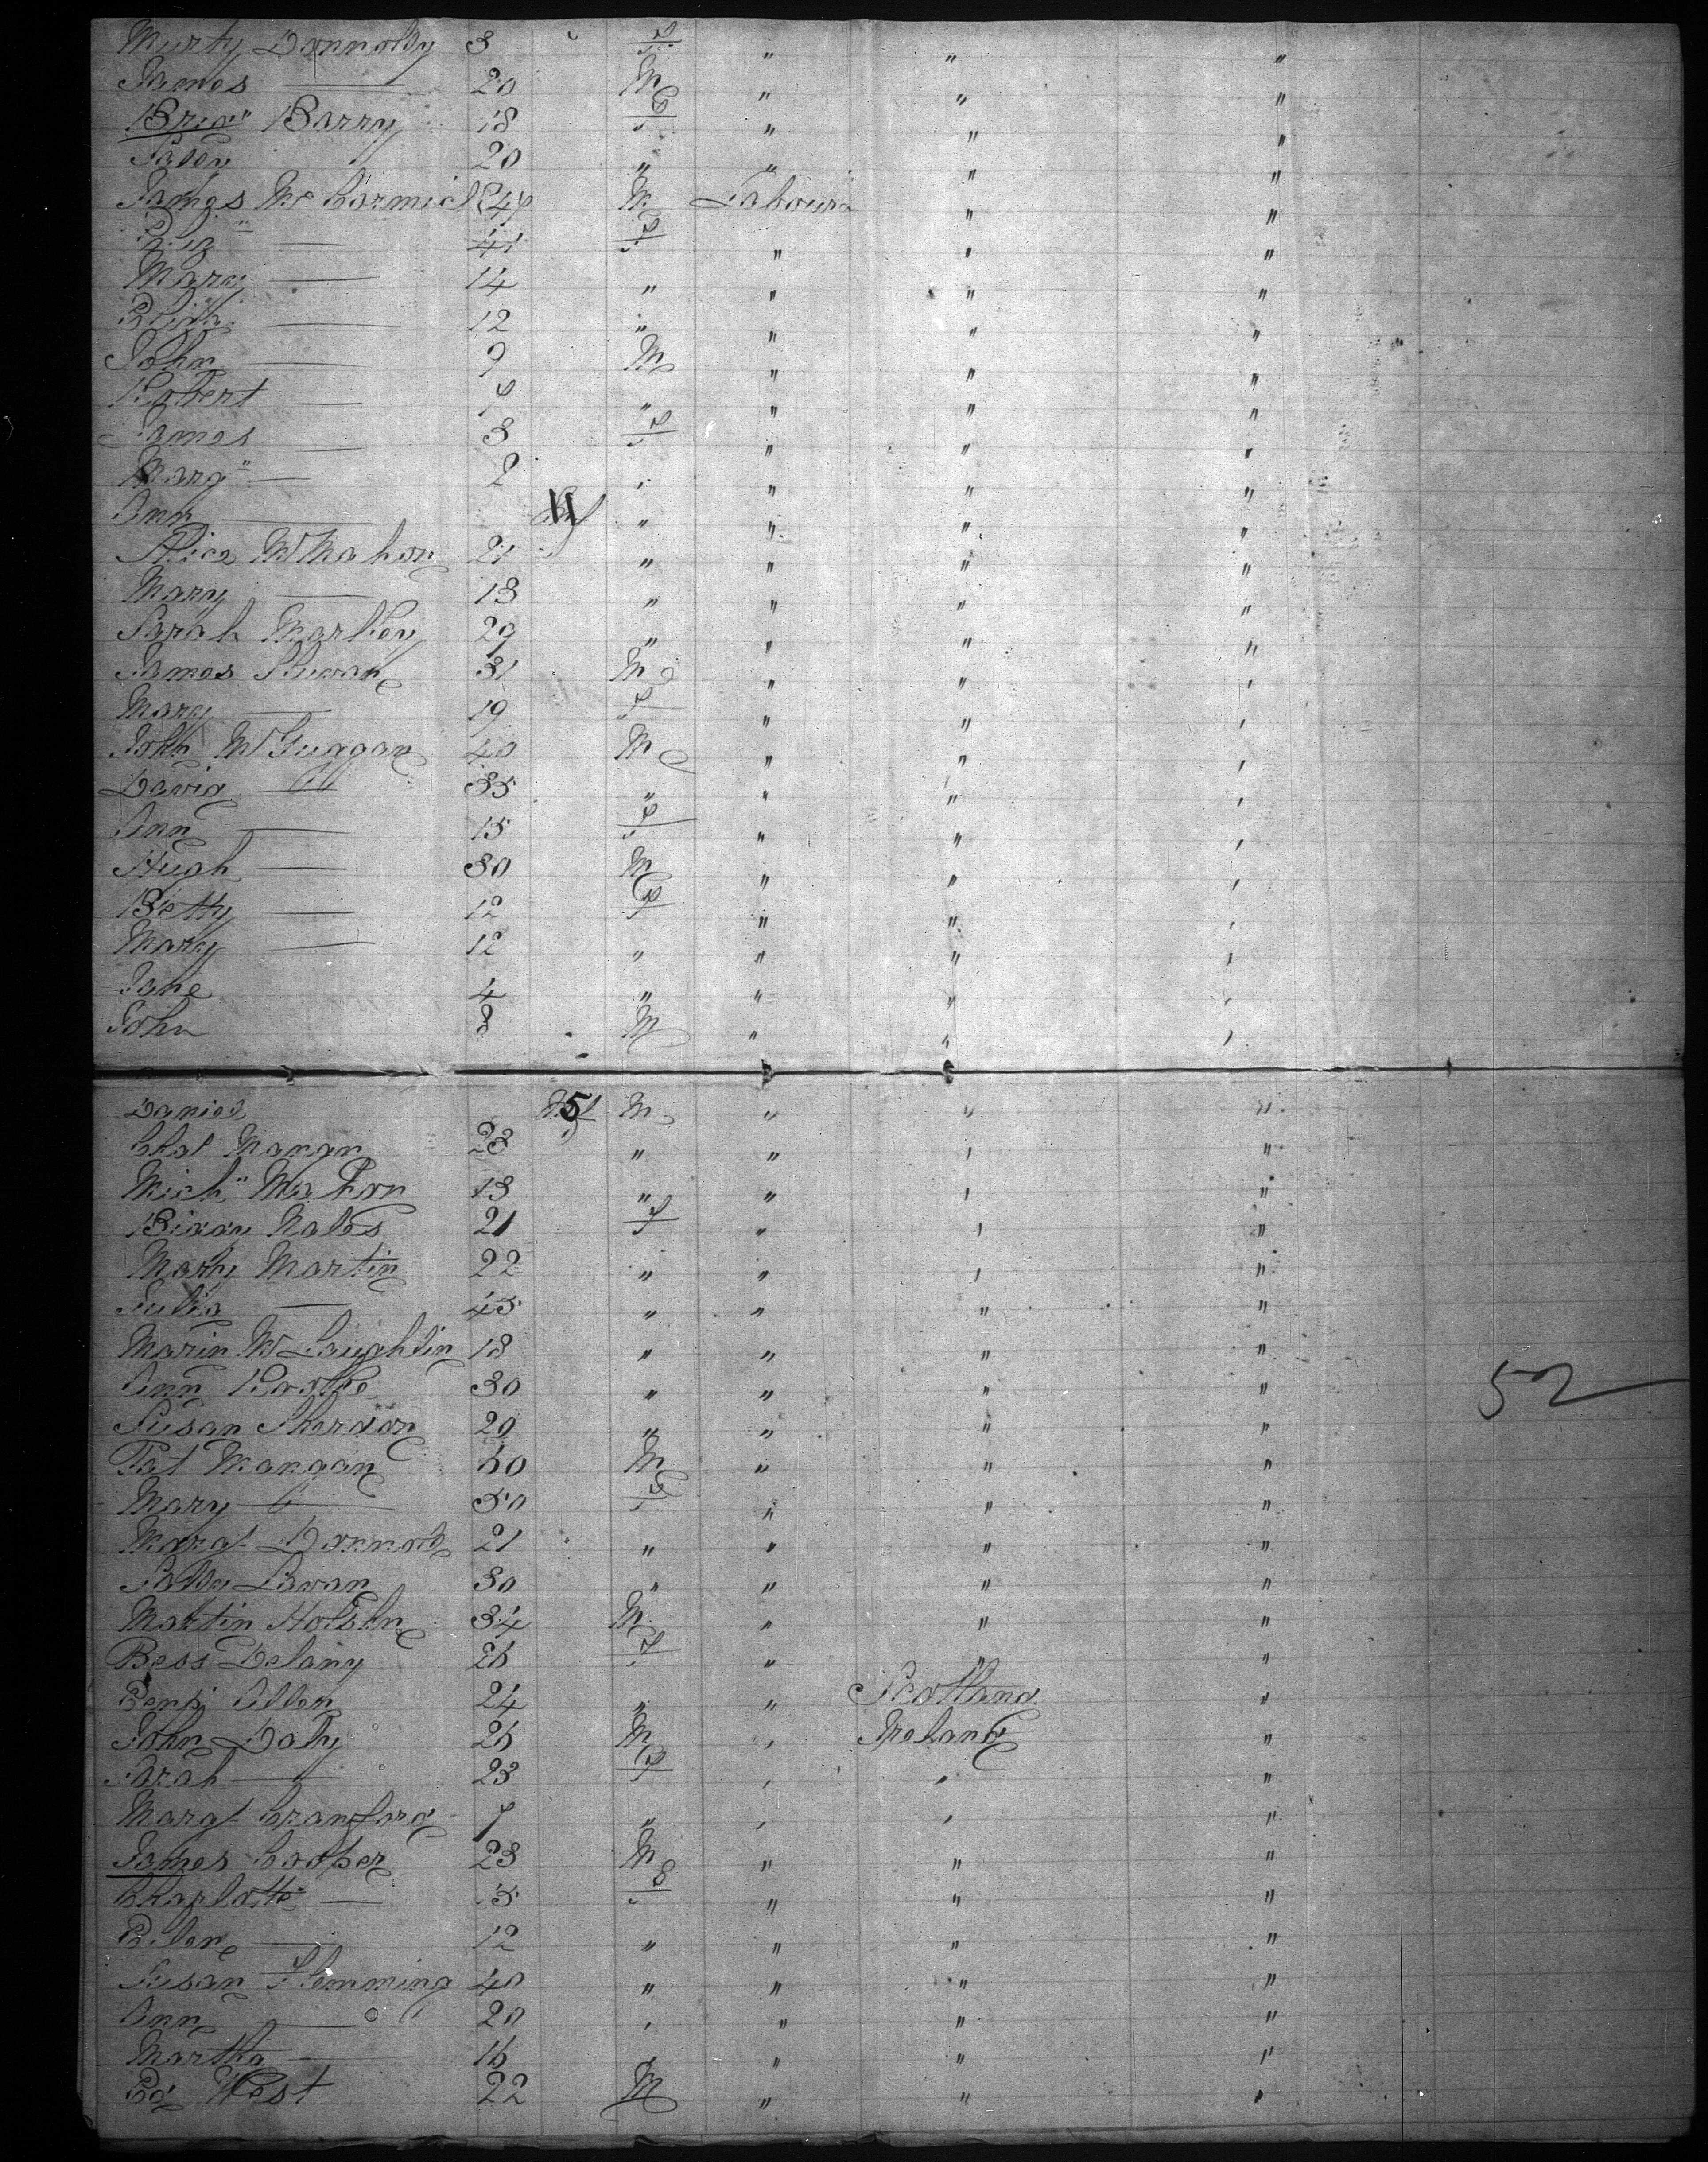 Murty Donnolly 3 F " " "
James — 20 M " " "
Brid" Barry 18 F " " "
Patby 20 " " " "
James McCormick 44 M Labour " "
Eliz" — 41 F " " "
Mary — 14 " " " "
Bridt — 12 " " " "
John — 9 M " " "
Robert — 7 " " " "
James — 3 F " " "
Marg" — 2 " " " "
Ann — 11 " " " "
Alice McMahon 21 " " " "
Mary — 13 " " " "
Sarah 29 " " " "
James 31 M " " "
Mary — 19 F " " "
John McGuggan 40 M " " "
David — 35 " " " "
Ann — 15 F " " "
Hugh — 30 M " " "
Betty — 12 F " " "
Mary — 12 " " " "
Jane 4 " " " "
John 3 M " " "
Daniel 5 M " " "
Chas Mangan 23 " " " "
Mich" Mahon 13 " " " "
Biddy Nales 21 F " " "
Mary Martin 22 " " " "
Julia — 45 " " " "
Marin McLaughlin 18 " " " "
Ann 30 " " " "
Susan Sherdon 20 " " " "
Pat Mangan 60 M " " "
Mary — 50 F " " "
Margt Donnold 21 " " " "
Patby Lavan 30 " " " "
Martin 34 M " " "
Bess Delany 26 F " " "
Benj Allen 24 " " Scotland "
John Daly 26 M " Ireland "
Sarah — 23 F " " "
Margt Crawford 7 " " " "
James Cooper 23 M " " "
Charlotte — 15 F " " "
Ellen — 12 " " " "
Susan Flemming 40 " " " "
Ann — 20 " " " "
Martha — 16 " " " "
Ed West 22 M " " "
52